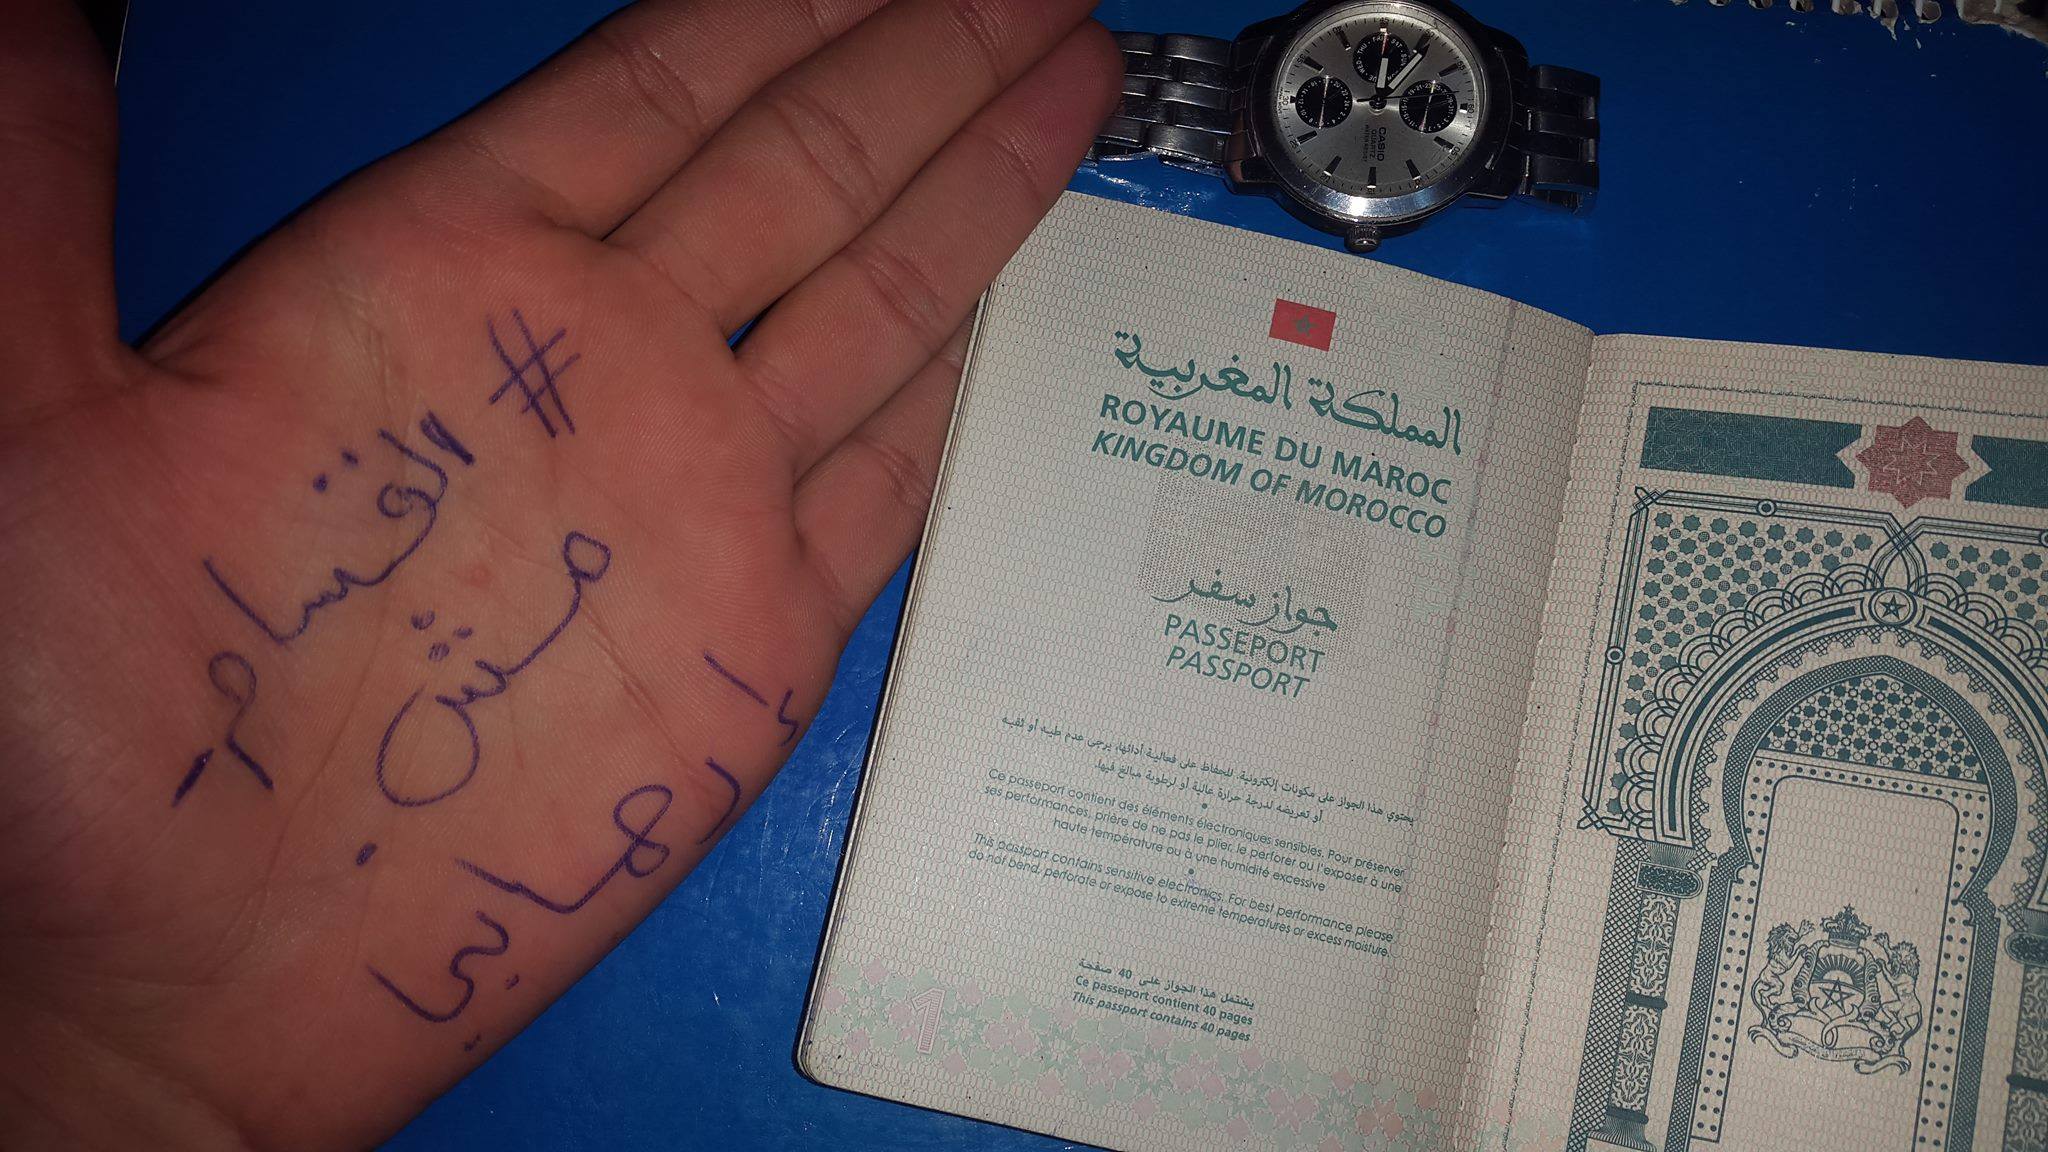 #القسام
مش
إرهابيا
CASIO
QUARTZ
WATER RESIST
المملكة المغربية
ROYAUME DU MAROC
KINGDOM OF MOROCCO
جواز سفر
PASSEPORT
PASSPORT
يحتوي هذا الجواز على مكونات إلكترونية. للحفاظ على فعالية أدائها، يرجى عدم طيه أو ثقبه
أو تعريضه لدرجة حرارة عالية أو لرطوبة مبالغ فيها.
Ce passeport contient des éléments électroniques sensibles. Pour préserver
ses performances, prière de ne pas le plier, le perforer ou l'exposer à une
haute température ou à une humidité excessive
This passport contains sensitive electronics. For best performance please
do not bend, perforate or expose to extreme temperatures or excess moisture.
يشتمل هذا الجواز على 40 صفحة
Ce passeport contient 40 pages
This passport contains 40 pages
1